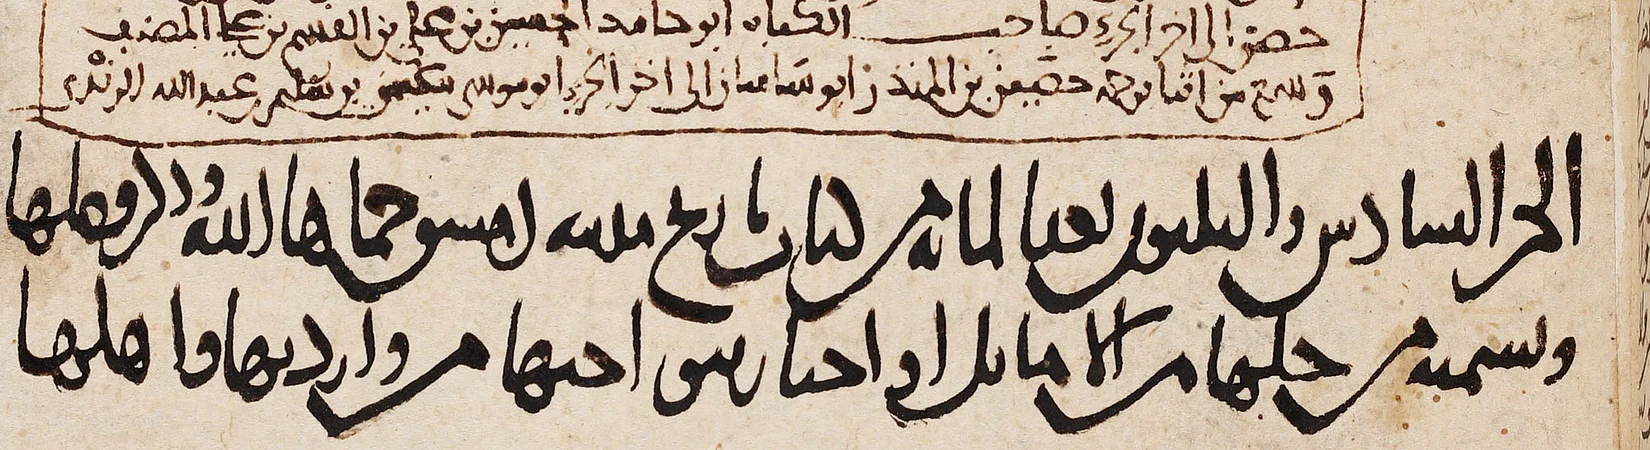 حضر الى اخر الجزء صاحب الكتاب ابو حامد الحسين بن علي بن القسم بن علي المصنف
وسمع من حصين بن المنذر ابو ساسان الى اخر الجزء ابو موسى بن عبد الله
الجزء السادس والثلثون بعد المائة من كتاب تاريخ مدينة دمشق حماها الله وذكر فضلها
وتسمية من حلها من الاماثل او اجتاز بنواحيها من وارديها واهلها